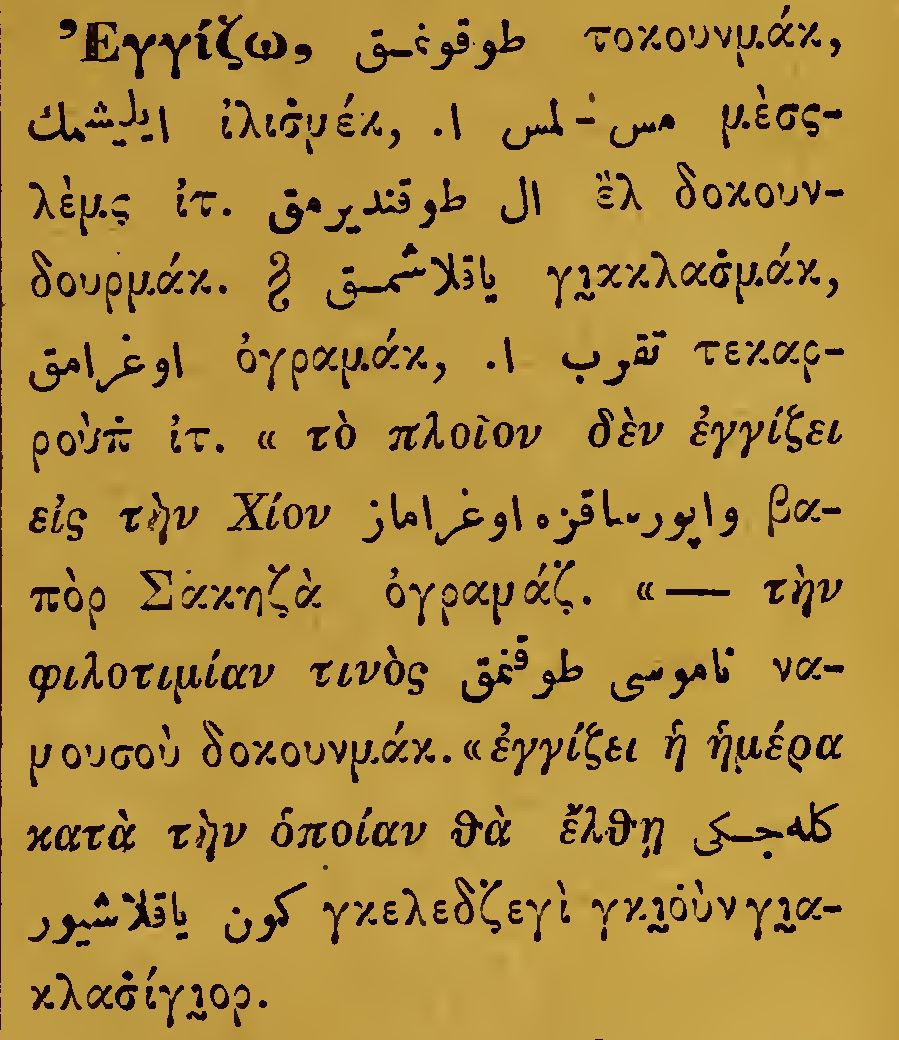 Ἐγγίζω, طوقونمق τοκουνμάκ,
ايليشمك ἰλισ̇μέκ, .ا مس-لمس μὲσς-
λὲμς ἰτ. ال طوقنديرمق ἒλ δοκουν-
δουρμάκ. § ياقلاشمق γι̰ακκλασ̇μάκ,
اوغرامق ὀγραμάκ, .ا تقرب τεκαρ-
ροὺπ̇ ἰτ. « τὸ πλοῖον δὲν ἐγγίζει
εἰς τὴν Χίον واپور ساقزه اوغراماز βα-
πὸρ Σακηζὰ ὀγραμάζ. «— τὴν
φιλοτιμίαν τινὸς ناموسى طوقنمق να-
μουσοὺ δοκουνμάκ. «ἐγγίζει ἡ ἡμέρα
κατὰ τὴν ὁποίαν θὰ ἔλθῃ كله‌جكى
كون ياقلاشيور γκελεδζεγὶ γκι̰ὸὺν γι̰α-
κλασ̇ίγι̰ορ.